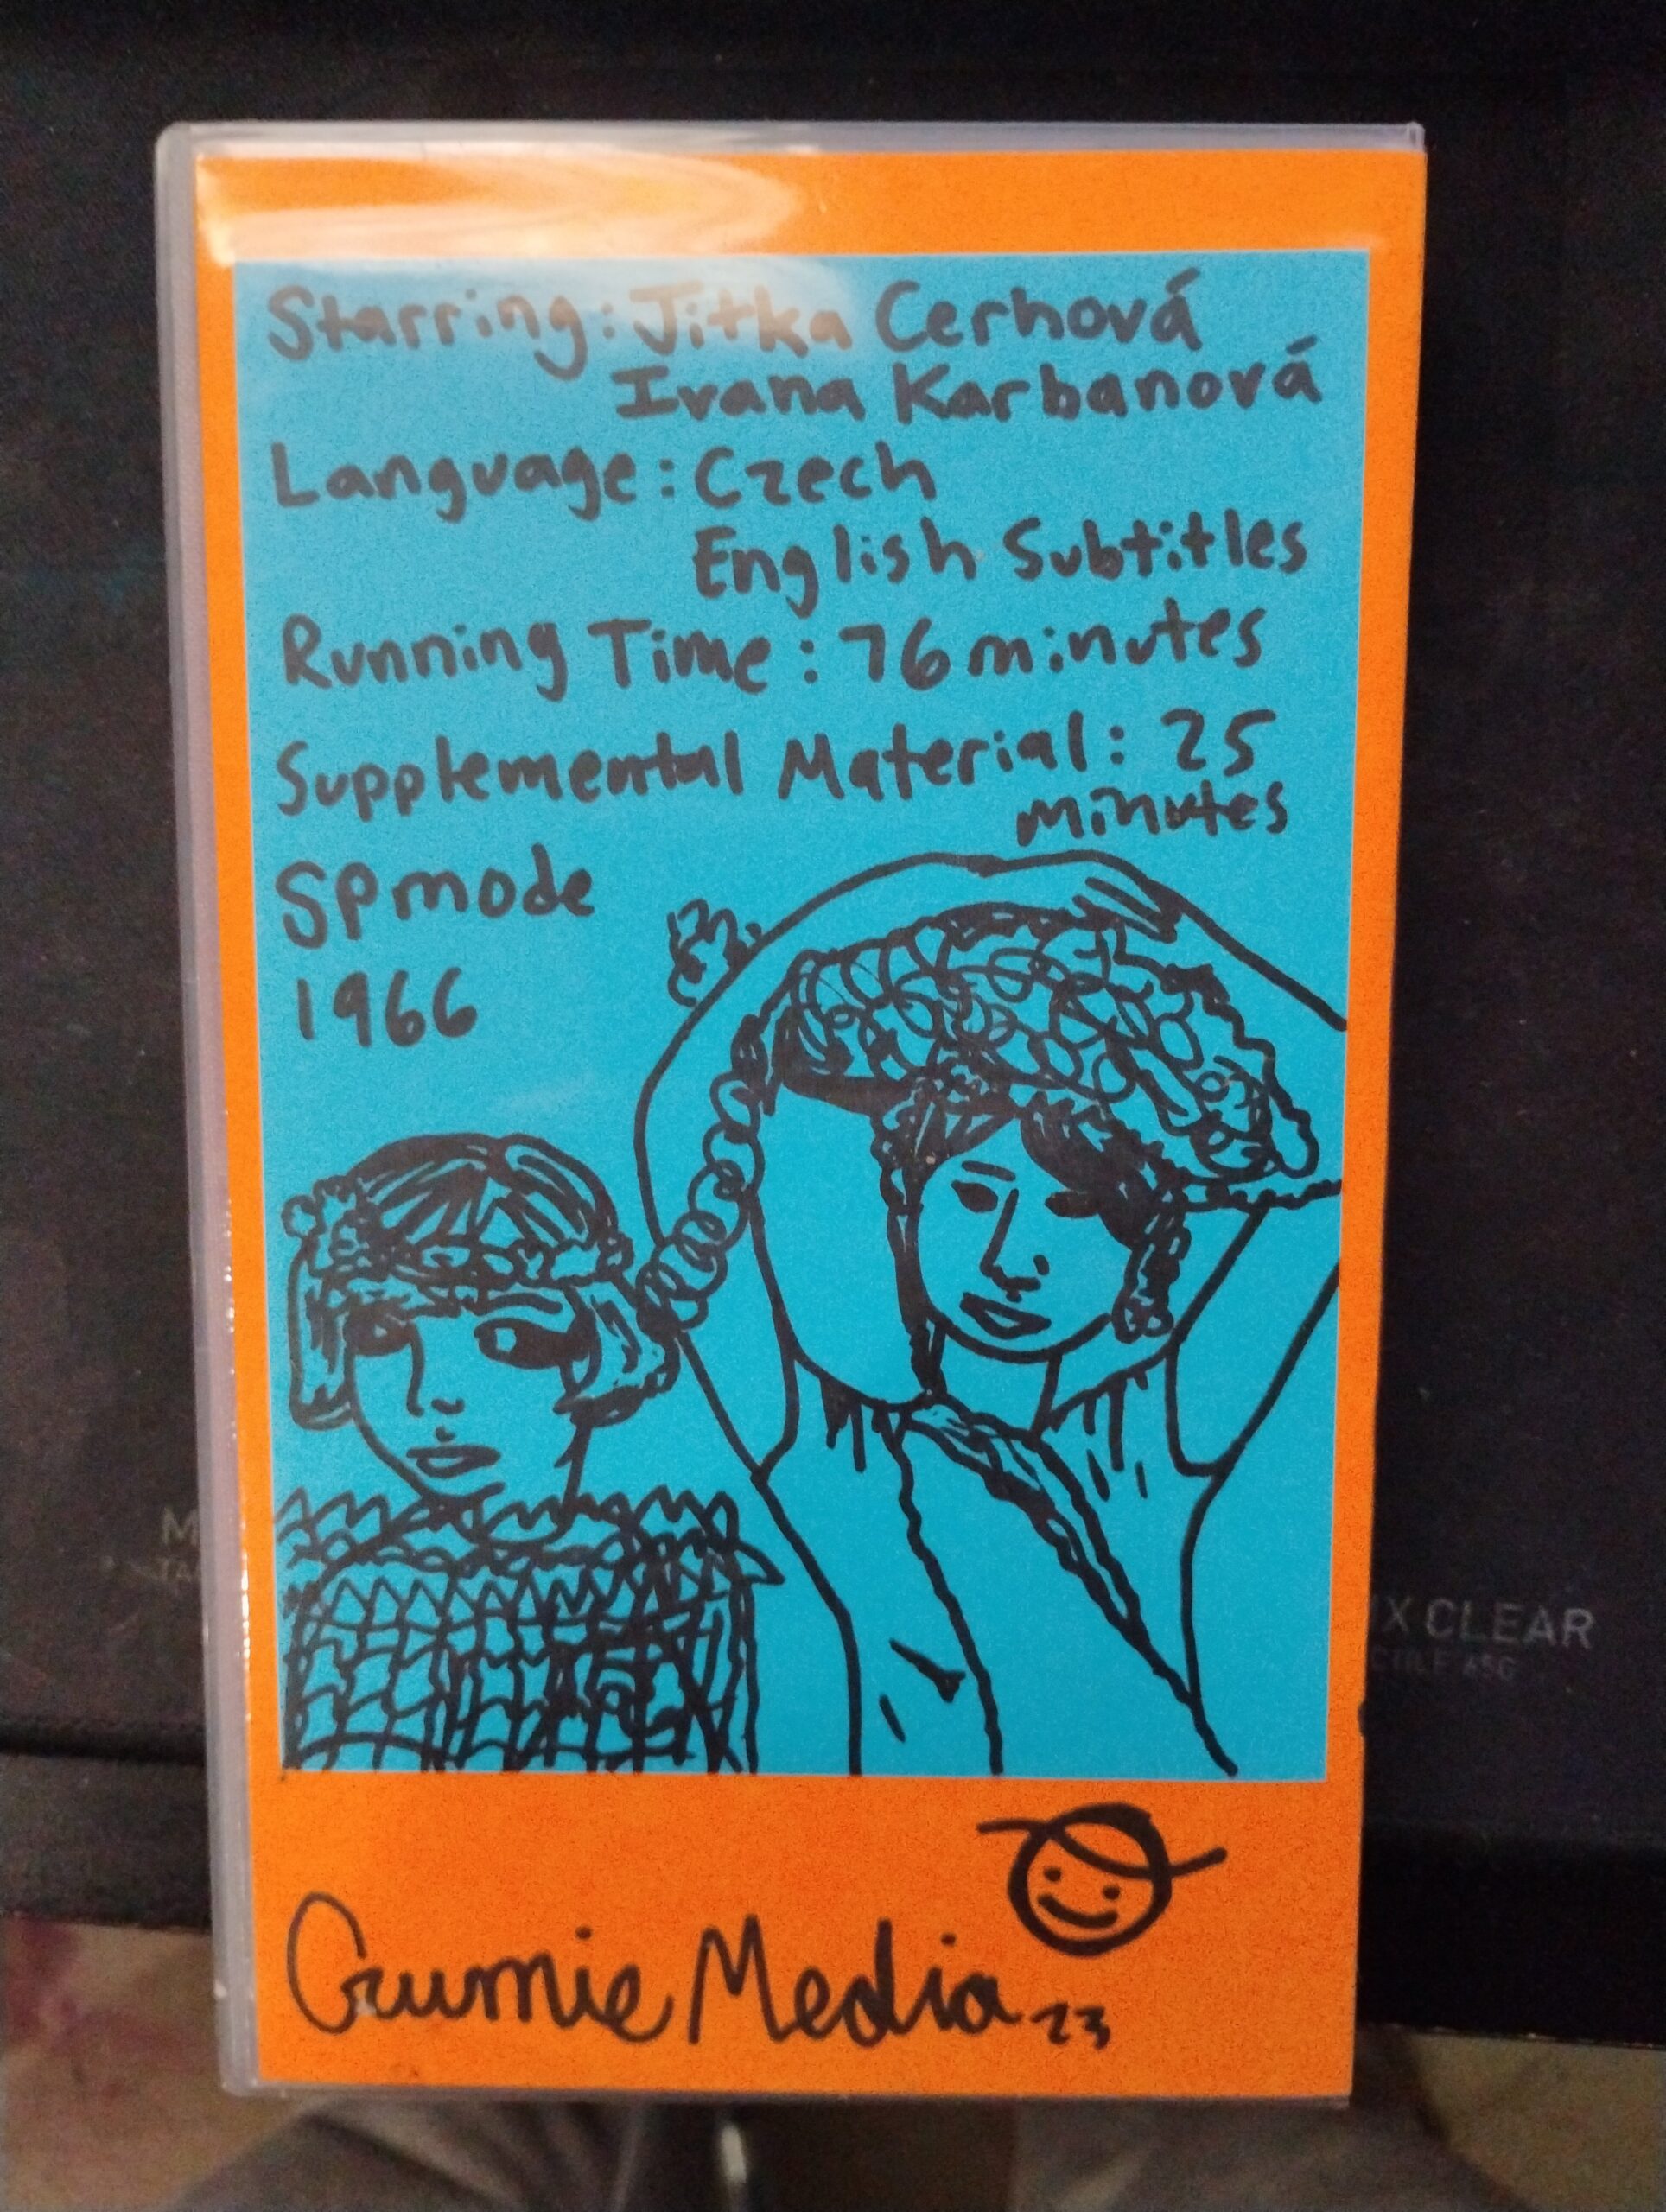 Starring: Jitka Cerhová
Ivana Karbanová
Language: Czech
English Subtitles
Running Time: 76 minutes
Supplemental Material: 25
minutes
SP mode
1966
IX CLEAR
Media 23